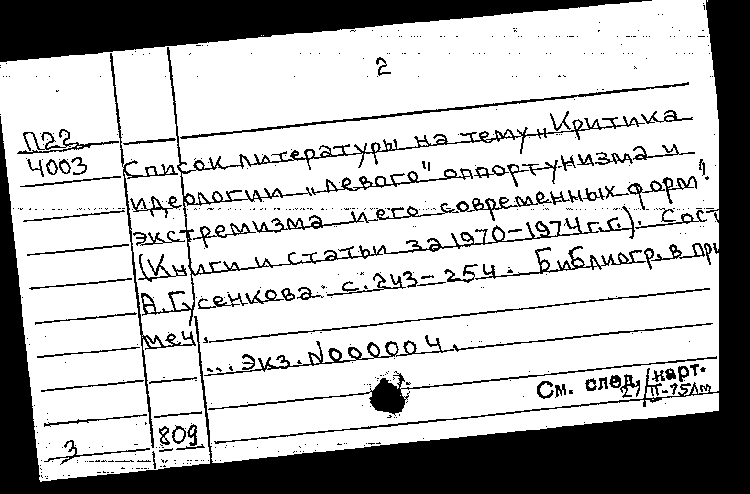 2
П22
4003 Список литературы на тему „Критика
идеологии „левого" оппортунизма и
экстремизма и его современных форм".
(Книги и статьи за 1970-1974 г.г.). Сост
А. Гусенкова. с. 243-254. Библиогр. в при
меч.
... экз. N000004.
См. след. карт.
27/II-75
3 809